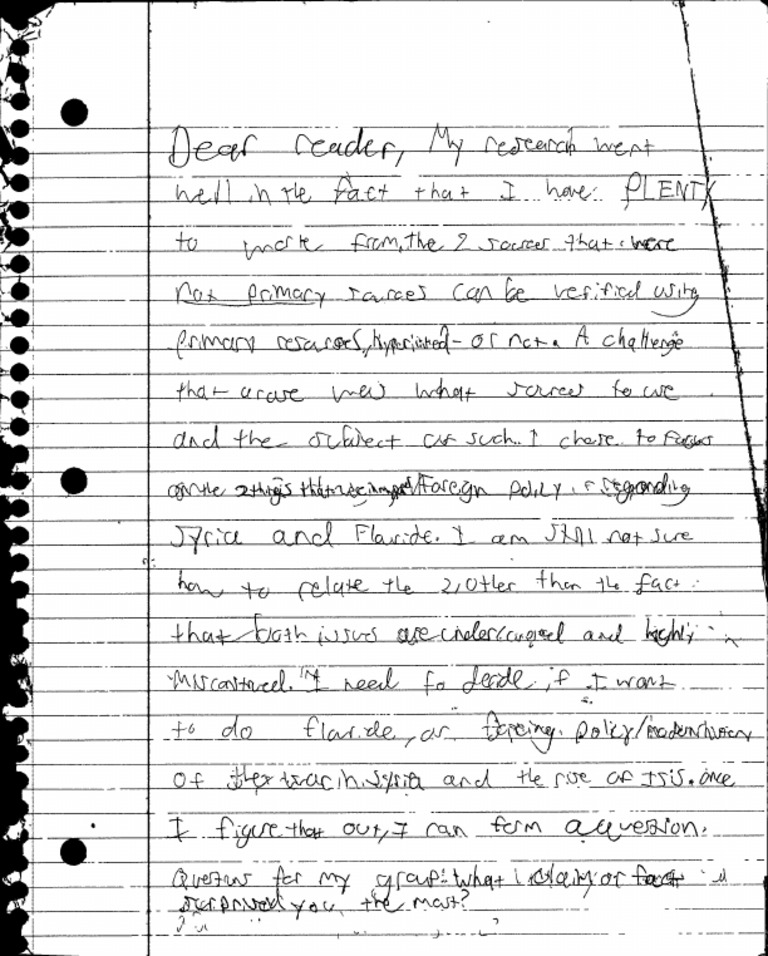 Dear reader, My research went
well in the fact that I have PLENTY
to work from, the 2 sources that were
not primary sources can be verified using
primary resources, - or not. A challenge
that arose was what sources to use
and the subject as such. I chose to focus
on the 2 things that Foreign policy regarding
Syria and Flaride. I am still not sure
how to relate the 2, other than the fact
that both issues are and highly
misconstrued. I need to decide if I want
to do flaride, or policy/
of the war in Syria and the rise of Isis. once
I figure that out, I can form a question.
Questions for my group: what claim or fact
surprised you the most?